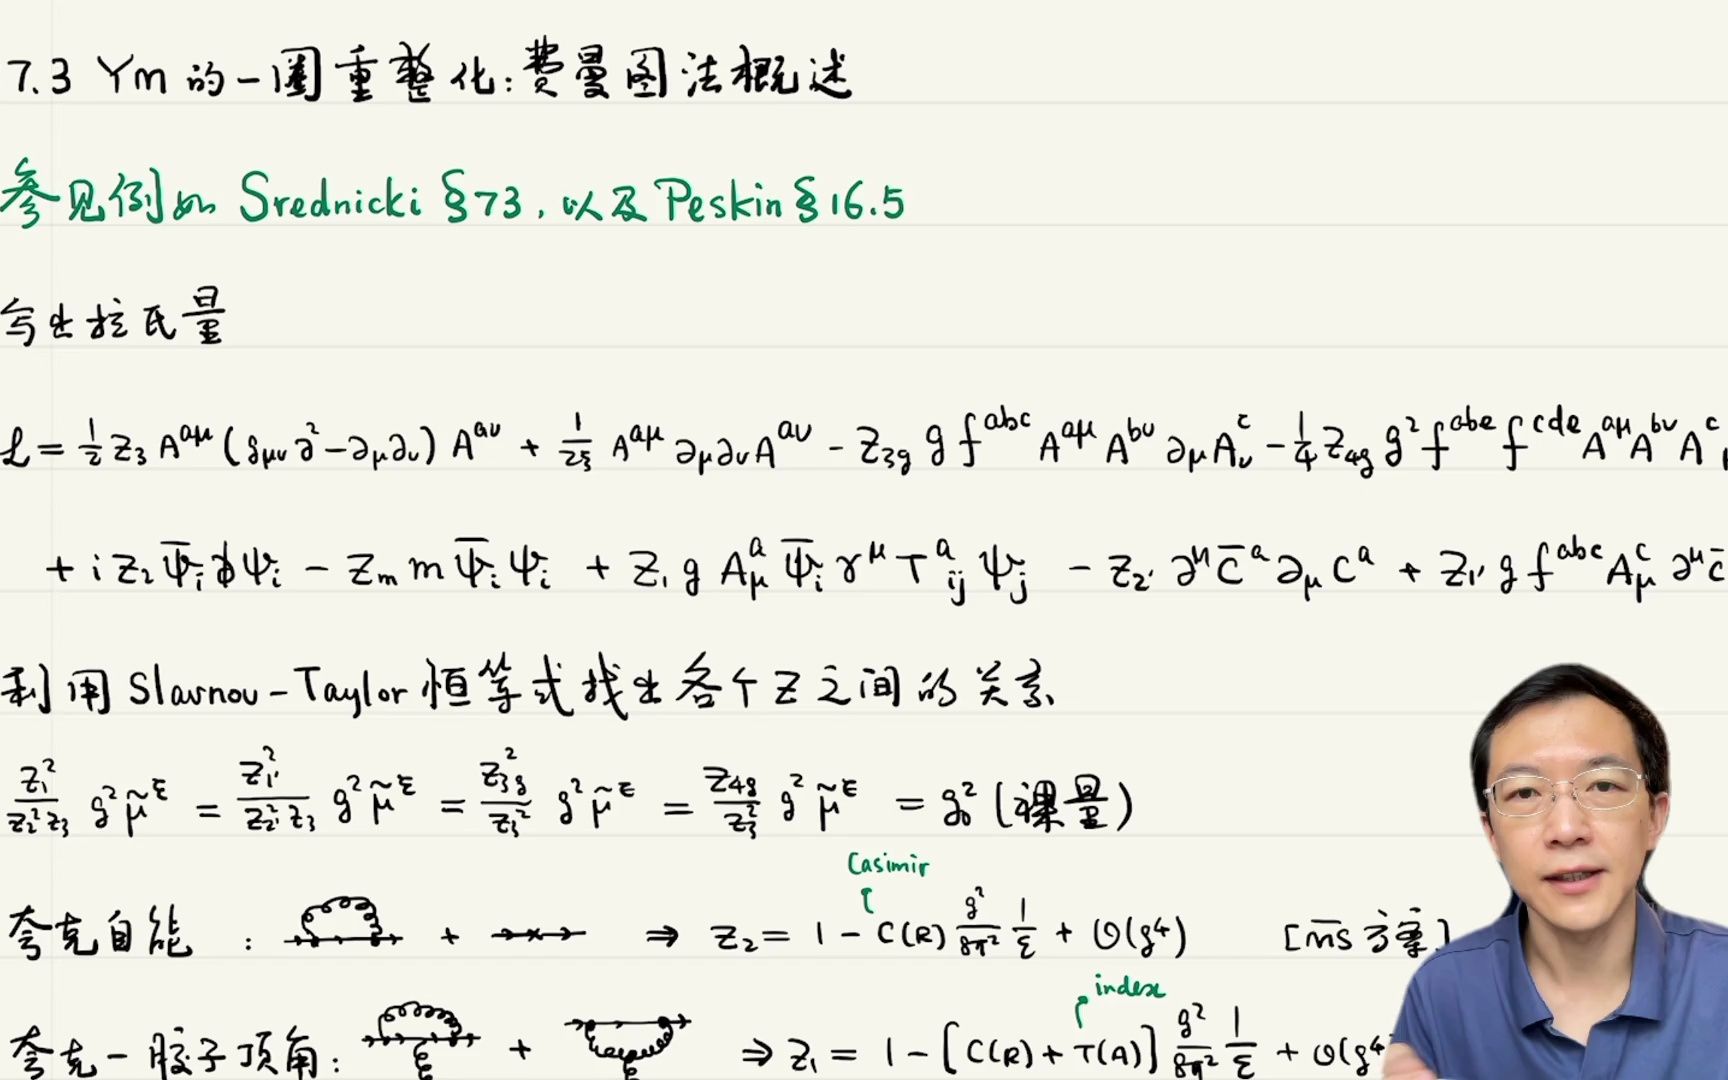 7.3 YM 的一圈重整化:费曼图法概述
参见例如 Srednicki §73, 以及 Peskin §16.5
写出拉氏量
ℒ = 1/2 Z₃ A^{aμ} (g_{μν}∂² − ∂_μ∂_ν) A^{aν} + 1/2ξ A^{aμ} ∂_μ∂_ν A^{aν} − Z_{3g} g f^{abc} A^{aμ} A^{bν} ∂_μ A^c_ν − 1/4 Z_{4g} g² f^{abe} f^{cde} A^{aμ} A^{bν} A^c
+ i Z₂ ψ̄_i ∂̸ ψ_i − Z_m m ψ̄_i ψ_i + Z₁ g A^a_μ ψ̄_i γ^μ T^a_{ij} ψ_j − Z_{2'} ∂^μ c̄^a ∂_μ c^a + Z_{1'} g f^{abc} A^c_μ ∂^μ c̄
利用 Slavnov-Taylor 恒等式找出各个 Z 之间的关系
Z₁²/Z₂²Z₃ g² μ̃^ε = Z_{1'}²/Z_{2'}²Z₃ g² μ̃^ε = Z_{3g}²/Z₃² g² μ̃^ε = Z_{4g}/Z₃² g² μ̃^ε = g₀² (裸量)
Casimir
夸克自能 : + ⇒ Z₂ = 1 − C(R) g²/8π² 1/ε + O(g⁴) [m̄s 方案]
index
夸克-胶子顶角: + ⇒ Z₁ = 1 − [C(R) + T(A)] g²/8π² 1/ε + O(g⁴